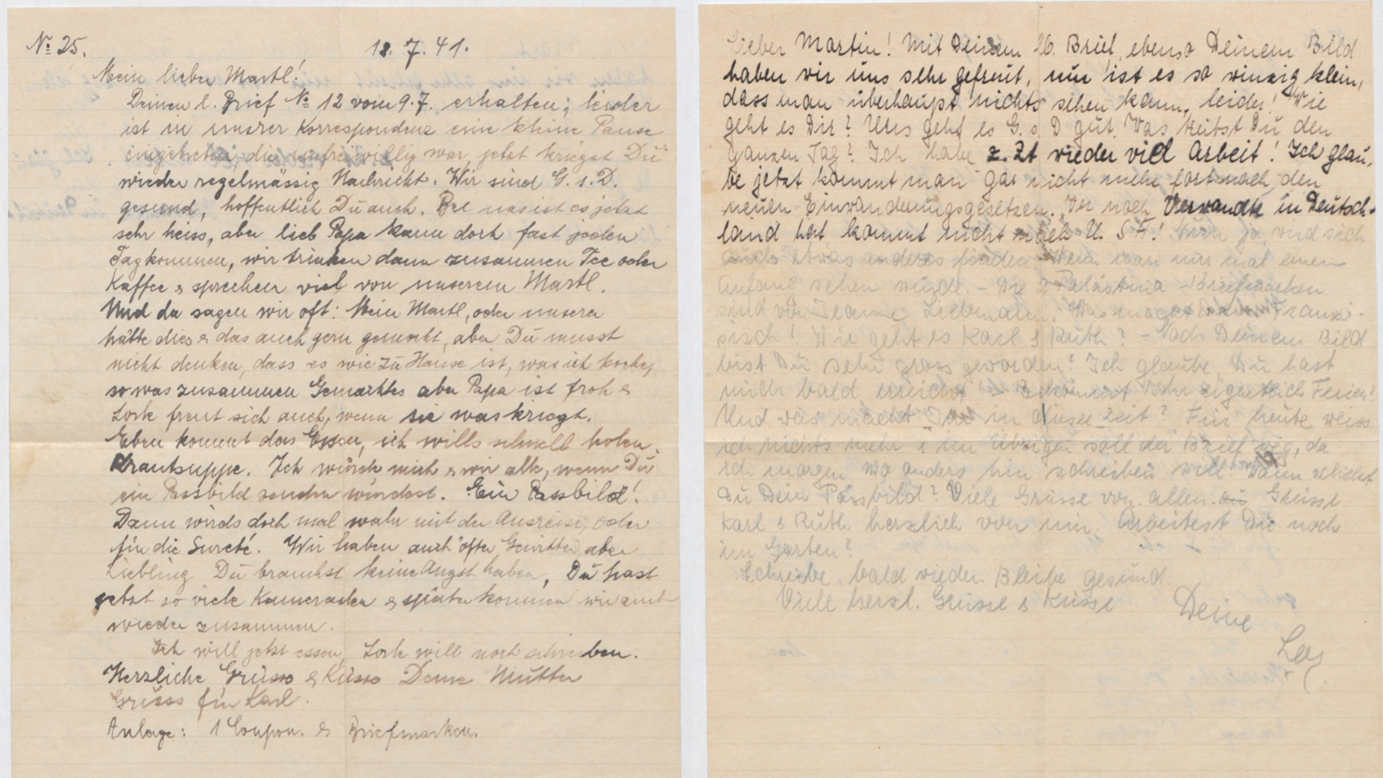 No 25. 18. 7. 41.
Mein lieber Martl!
Deinen l. Brief No 12 vom 9.7. erhalten; leider
ist in unserer Korrespondenz eine kleine Pause
eingetreten, die unfreiwillig war, jetzt kriegst Du
wieder regelmässig Nachricht. Wir sind G. s. D.
gesund, hoffentlich Du auch. Bei uns ist es jetzt
sehr heiss, aber lieb Papa kann doch fast jeden
Tag kommen, wir trinken dann zusammen Tee oder
Kaffee & sprechen viel von unserem Martl.
Und da sagen wir oft: Mein Martl, oder unserer
hätte dies & das auch gern gemocht, aber Du musst
nicht denken, dass es wie zu Hause ist, was ich koche,
so was zusammen Gemachtes aber Papa ist froh &
Lore freut sich auch, wenn sie was kriegt.
Eben kommt das Essen, ich wills schnell holen.
Krautsuppe. Ich würde mich & wir alle, wenn Du
ein Passbild senden würdest. Ein Passbild!
Dann wirds doch mal wahr mit der Ausreise, oder
für die Sureté. Wir haben auch öfter Gewitter, aber
Liebling Du brauchst keine Angst haben, Du hast
jetzt so viele Kameraden & später kommen wir auch
wieder zusammen.
Ich will jetzt essen, Lore will noch schreiben.
Herzliche Grüsse & Küsse Deine Mutter
Gruss für Karl.
Anlage: 1 Coupon. & Briefmarken.
Lieber Martin! Mit Deinem 26. Brief, ebenso Deinem Bild
haben wir uns sehr gefreut, nur ist es so winzig klein,
dass man überhaupt nichts sehen kann, leider! Wie
geht es Dir? Uns geht es G. s. D gut. Was treibst Du den
ganzen Tag? Ich habe z. Zt wieder viel Arbeit! Ich glau-
be jetzt kommt man gar nicht mehr fort nach den
neuen Einwanderungsgesetzen. Wer noch Verwandte in Deutsch-
land hat kommt nicht nach U. S. A. Nun ja, wird sich
auch etwas anderes finden. Wenn man nur mal einen
Anfang sehen würde. - Die 2 Palästina - Briefmarken
sind von Jeanne Liebmann. Was macht Dein Franzö-
sisch! Wie geht es Karl & Ruth? - Nach Deinem Bild
bist Du sehr gross geworden! Ich glaube Du hast
mich bald erreicht. Bekommst Du eigentlich Ferien?
Und was machst Du in dieser Zeit? Für heute weiss
ich nichts mehr & im Übrigen soll der Brief weg, da
ich morgen wo anders hin schreiben will. Wann schickst
Du Dein Passbild? Viele Grüsse von allen. Grüsse
Karl & Ruth herzlich von mir. Arbeitest Du noch
im Garten?
Schreibe bald wieder. Bleibe gesund
Viele herzl. Grüsse & Küsse Deine